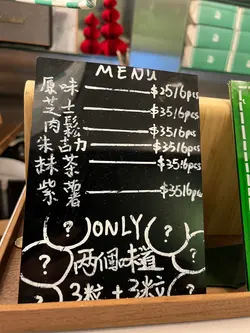 MENU
原味 $25/6pcs
芝士 $35/6pcs
肉鬆 $35/6pcs
朱古力 $35/6pcs
抹茶 $35/6pcs
紫薯 $35/6pcs
? ONLY ?
? 两個味道 ?
3粒 + 3粒